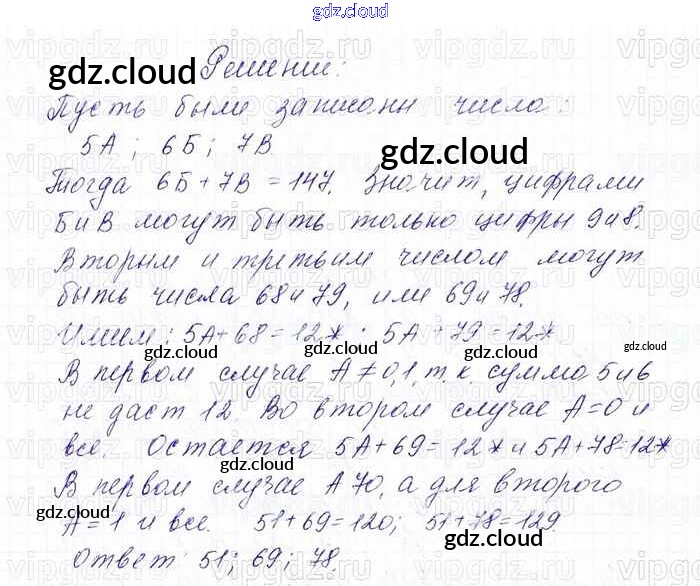 gdz.cloud
Решение:
gdz.cloud
Пусть были записаны числа:
5А; 6Б; 7В
gdz.cloud
Тогда 6Б+7В=147. Значит, цифрами
Б и В могут быть только цифры 9 и 8.
Вторым и третьим числом могут
быть числа 68 и 79, или 69 и 78.
Имеем: 5А+68=12*; 5А+79=12*
gdz.cloud gdz.cloud gdz.cloud
В первом случае А≠0,1, т.к. сумма 5 и 6
не даст 12. Во втором случае А=0 и
gdz.cloud
все. Остается 5А+69=12* и 5А+78=12*
gdz.cloud
В первом случае А70, а для второго
gdz.cloud
А=1 и все. 51+69=120; 51+78=129.
gdz.cloud
Ответ: 51; 69; 78.